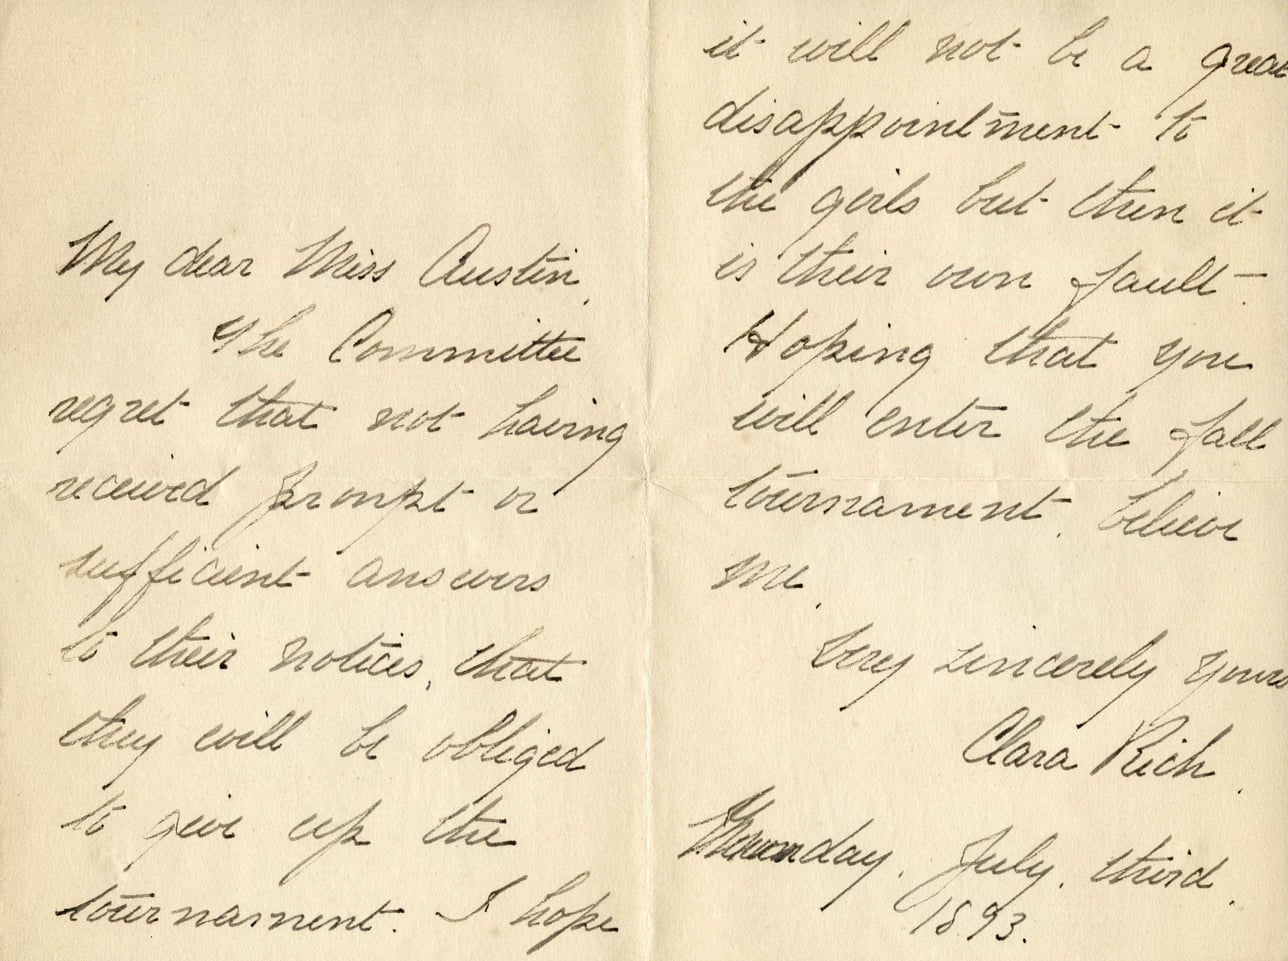 My dear Miss Austin,
The Committee
regret that not having
received prompt or
sufficient answers
to their notices, that
they will be obliged
to give up the
tournament. I hope
it will not be a great
disappointment to
the girls but then it
is their own fault.
Hoping that you
will enter the fall
tournament, believe
me,
Very sincerely yours
Clara Rich.
Monday, July, third,
1893.